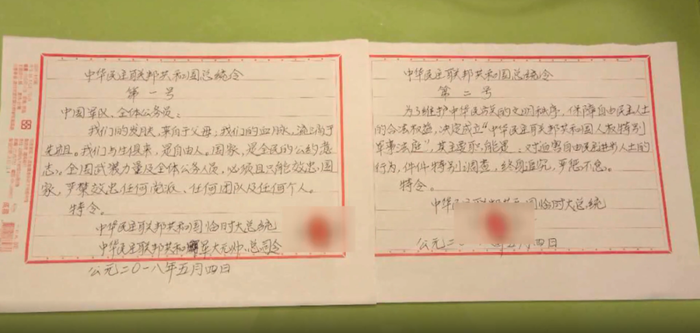 中华民主联邦共和国总统令
第一号
中国军队、全体公务员：
我们的发肤，来自于父母，我们的血脉，
先祖。我们为生俱来，是自由人。国家，是全民的公约意
志。全国武装力量及全体公务员，必须且只能效忠国
家，严禁效忠任何党派、任何团队及任何个人。
特令。
中华民主联邦共和国临时大总统
中华民主联邦共和国军大元帅、总司令
公元二〇一八年五月四日
中华民主联邦共和国总统令
第二号
为了维护中华民族的文明秩序，保障自由民主人士
的合法权益，决定成立“中华民主联邦共和国人权特别
军事法庭”，其主要职能是，对迫害自由民主进步人士的
行为，件件特别调查，终身追究，严惩不怠。
特令。
中华民主联邦共和国临时大总统
公元二 月四日